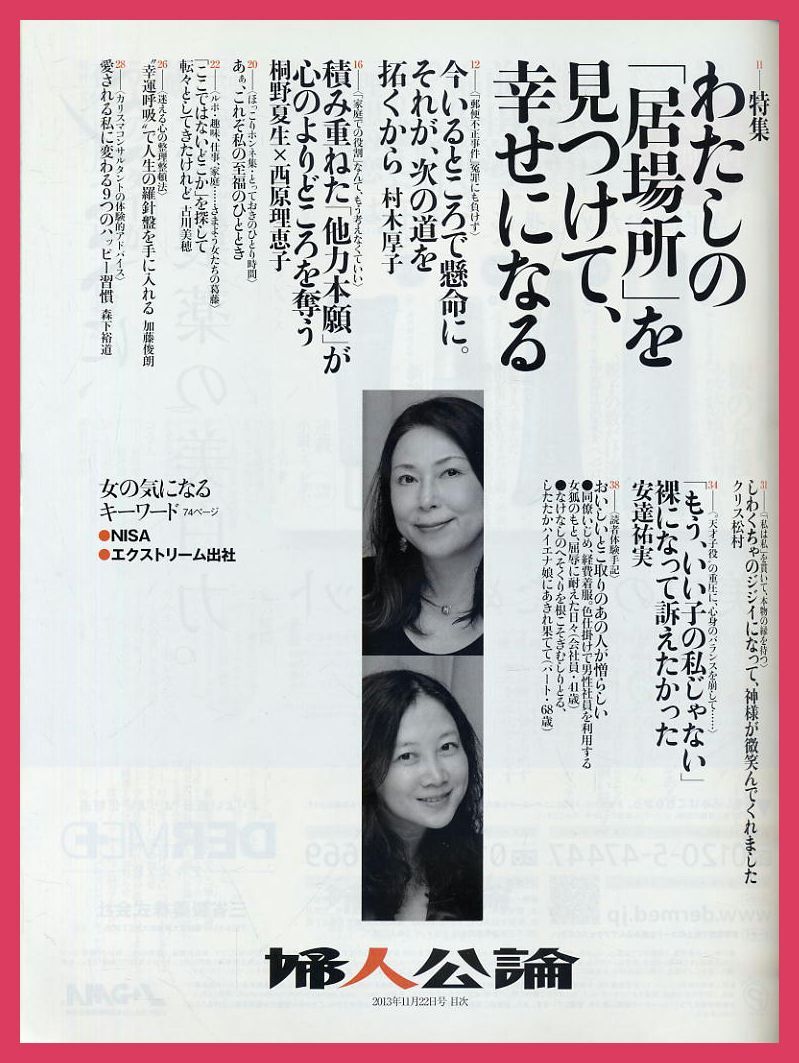 11——特集
わたしの
「居場所」を
見つけて、
幸せになる
12——〈「郵便不正事件」冤罪にも負けず〉
今いるところで懸命に。
それが、次の道を
拓くから 村木厚子
16——〈「家庭での役割」なんて、もう考えなくていい〉
積み重ねた「他力本願」が
心のよりどころを奪う
桐野夏生×西原理恵子
20——〈ほっこりホンネ集・とっておきのひとり時間〉
あぁ、これぞ私の至福のひととき
22——〈ルポ・趣味、仕事、家庭……さまよう女たちの葛藤〉
「ここではないどこか」を探して
転々としてきたけれど 古川美穂
26——〈迷える心の整理整頓法〉
“幸運呼吸”で人生の羅針盤を手に入れる 加藤俊朗
28——〈カリスマコンサルタントの体験的アドバイス〉
愛される私に変わる9つのハッピー習慣 森下裕道
31——〈「私は私」を貫いて、本物の縁を持つ〉
しわくちゃのジジイになって、神様が微笑んでくれました
クリス松村
34——〈“天才子役”の重圧に、心身のバランスを崩して……〉
「もう、いい子の私じゃない」
裸になって訴えたかった
安達祐実
38——〈読者体験手記〉
おいしいとこ取りのあの人が憎らしい
●同僚いじめ、経費着服、色仕掛けで男性社員を利用する
女狐のもと、屈辱に耐えた日々（会社員・41歳）
●なけなしのへそくりを根こそぎむしりとる、
したたかハイエナ娘にあきれ果てて（パート・68歳）
女の気になる
キーワード 74ページ
●NISA
●エクストリーム出社
婦人公論
2013年11月22日号 目次